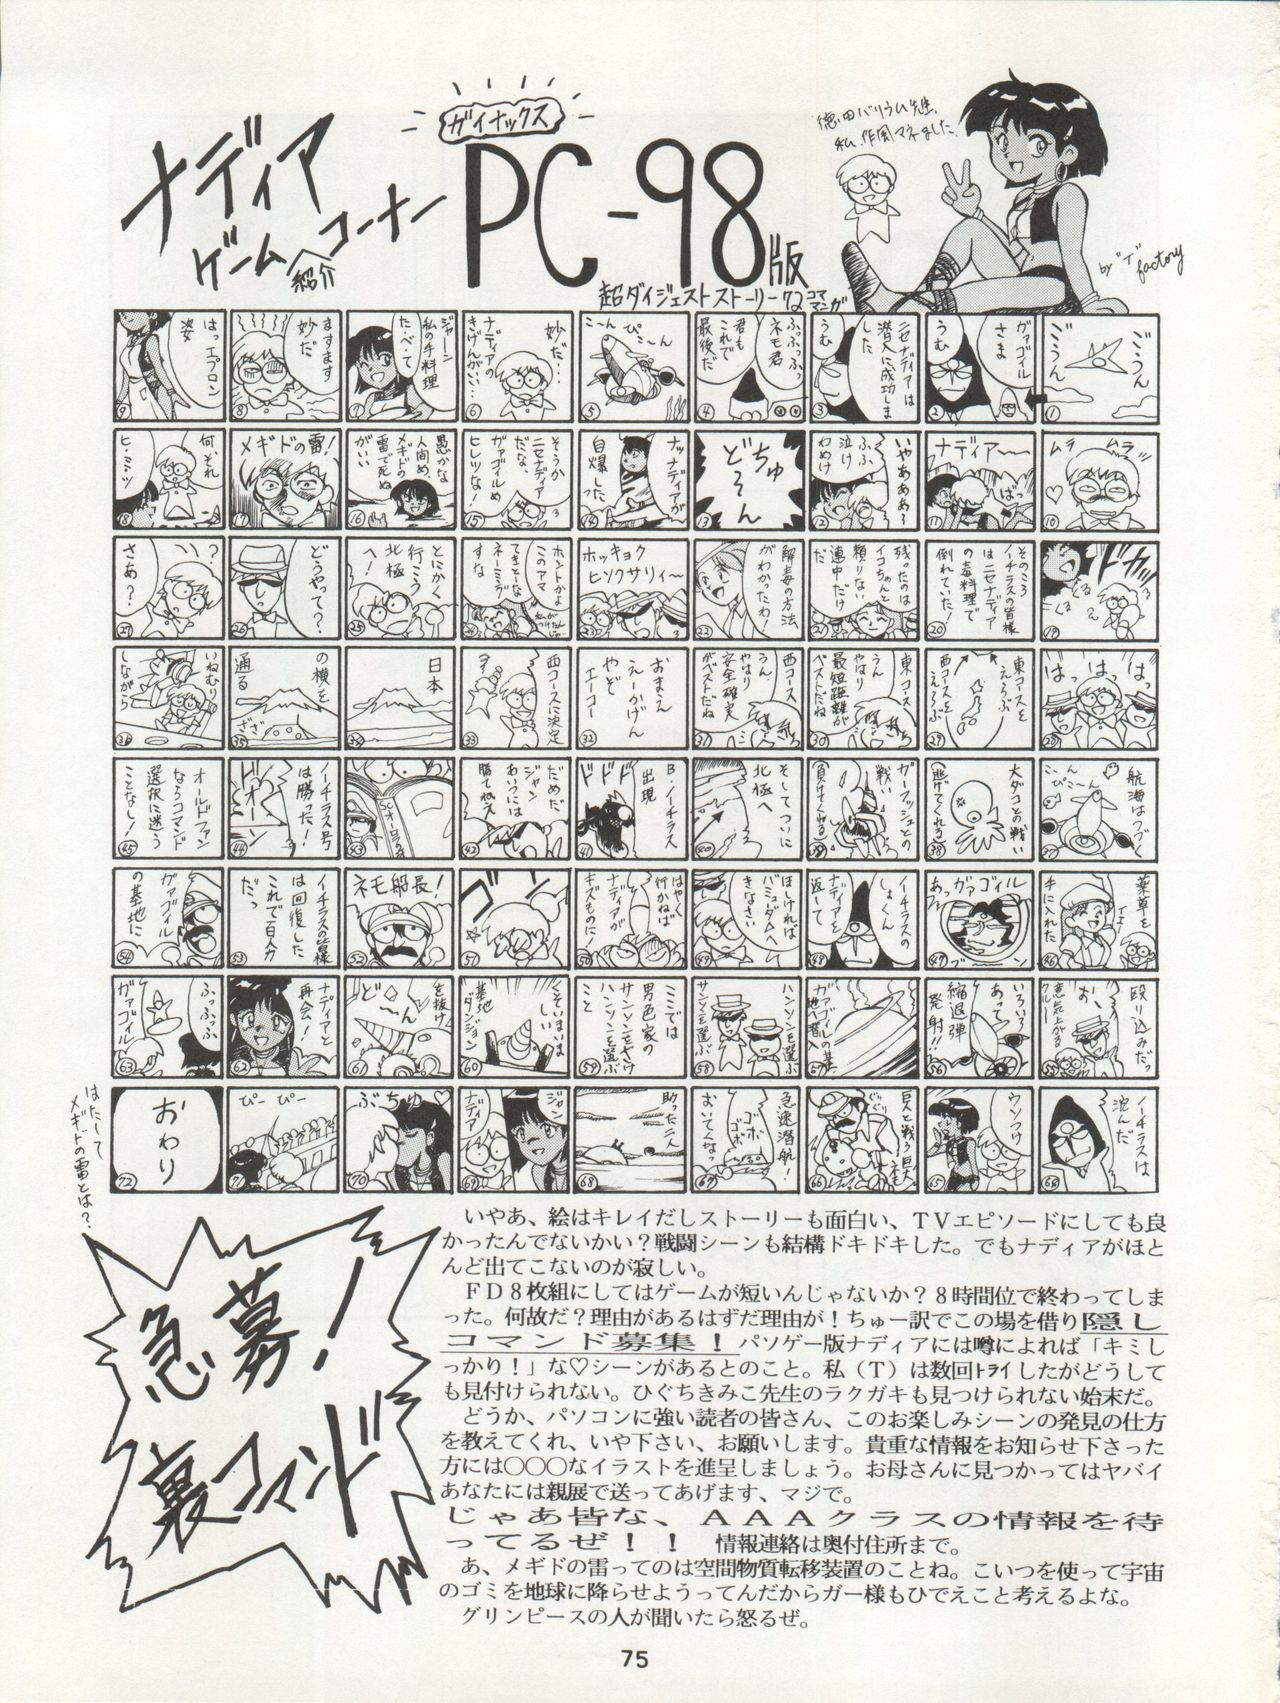 ナディア
ゲーム紹介コーナー
ガイナックス
PC-98版
超ダイジェストストーリー72コママンガ
徳田バリウム先生、
私、作風マネました。
by "T" factory
ごうん
ごうん
1
ガァゴイル
さま
うむ
2
ニセナディアは
潜入に成功しま
した
うむ
3
ふっふっふっ
ネモ君
君も
これで
最後だ
4
こーん
ぴーん
5
妙だ…
ナディアの
きげんがいい…
6
ジャーン
私の手料理
たべて
7
ますます
妙だ
8
はっエプロン
姿
9
ムラ
ムラッ
10
ナディア〜〜
ばっ
11
いやあああ〜
ふふ、
泣け
わめけ
12
ちゅ
どーん
13
ナッナディアが
自爆した
14
そうか
ニセナディア
だな、
ガァゴイルめ
ヒレツな!
15
愚かな
人間め
メギドの
雷で死ぬ
がいい
16
メギドの雷!
17
何それ
ヒ・ミ・ツ
18
ドカッ
19
そのころ
ノーチラスの皆様
はニセナディア
の毒料理で
倒れていた!
20
残ったのは
イコちゃんと
頼りない
連中だけ
だ
21
解毒の方法
がわかったわ!
22
ホッキョク
ヒソクサリィ〜
23
ホントかよ
このアマ
てきとーな
ネーミング
すな
24
とにかく
行こう
北極
へ!
25
どうやって?
26
?
さあ?
27
はっ
はっ
はっ
28
東コースを
えらぶ
西コースを
えらぶ
29
東コース
うん
やはり
最短距離が
ベストだね
30
西コース
うん
やはり
安全確実
がベストだね
31
おまえ
えーかげん
やぞ
エーコー
32
西コースに決定
33
日本
34
の横を
通る
ざざ
35
いねむり
しながら
36
航海はつづく
こーん
ぴこーん
37
大ダコとの戦い
(逃げてくれる)
38
ガーフィッシュとの
戦い
(負けてくれる)
39
そしてついに
北極へ
40
B・ノーチラス
出現
ドドド
41
だめだ、
ジャン
あいつには
勝てねえ
42
43
ノーチラス号
は勝った!
ドォーン
44
オールドファン
ならコマンド
選択に迷う
ことなし!
45
薬草を
手に入れた
イエー
46
ガァゴイル
あっ
ブーン
47
ノーチラスの
しょくん
ナディアを
返して
48
ほしければ
バミューダへ
きなさい
49
はやく
行かねば
ナディアが
キズものに!
50
ゴゴ
51
ネモ船長!
52
ノーチラスの皆様
は回復した
これで百人力
だっ
53
ガァゴイル
の基地に
54
殴り込みだっ
お、
意気上がる
クルー
55
いろいろ
あって
縮退弾
発射!!
56
ガァゴイルの基
地へ潜入
57
ハンソンを選ぶ
サンソンを選ぶ
58
ここでは
男色家の
サンソンをさけ
ハンソンを選ぶ
こと
59
くそいまいま
しい
基地
ダンジョン
60
を抜け
どーん
61
ナディアと
再会!
62
ふっふっふ
ガァゴイル
63
ノーチラスは
沈んだ
64
ウソつけ
65
巨人と戦う巨大
ネモ
66
急速潜航!
ゴボゴボ
おいてくなっ
67
助った二人
68
ジャン
ナディア
69
ぶちゅ♡
70
ぴーぴー
71
おわり
72
はたして
メギドの雷とは?
急募!
裏コマンド
いやあ、絵はキレイだしストーリーも面白い、TVエピソードにしても良
かったんでないかい?戦闘シーンも結構ドキドキした。でもナディアがほと
んど出てこないのが寂しい。
FD8枚組にしてはゲームが短いんじゃないか?8時間位で終わってしま
った。何故だ?理由があるはずだ理由が!ちゅー訳でこの場を借り隠し
コマンド募集!パソゲー版ナディアには噂によれば「キミし
っかり!」な♡シーンがあるとのこと。私(T)は数回トライしたがどうして
も見付けられない。ひぐちきみこ先生のラクガキも見つけられない始末だ。
どうか、パソコンに強い読者の皆さん、このお楽しみシーンの発見の仕方
を教えてくれ、いや下さい、お願いします。貴重な情報をお知らせ下さった
方には〇〇〇なイラストを進呈しましょう。お母さんに見つかってはヤバイ
あなたには親展で送ってあげます、マジで。
じゃあ皆な、AAAクラスの情報を待
ってるぜ!!情報連絡は奥付住所まで。
あ、メギドの雷ってのは空間物質転移装置のことね。こいつを使って宇宙
のゴミを地球に降らせようってんだからガー様もひでえこと考えるよな。
グリンピースの人が聞いたら怒るぜ。
75